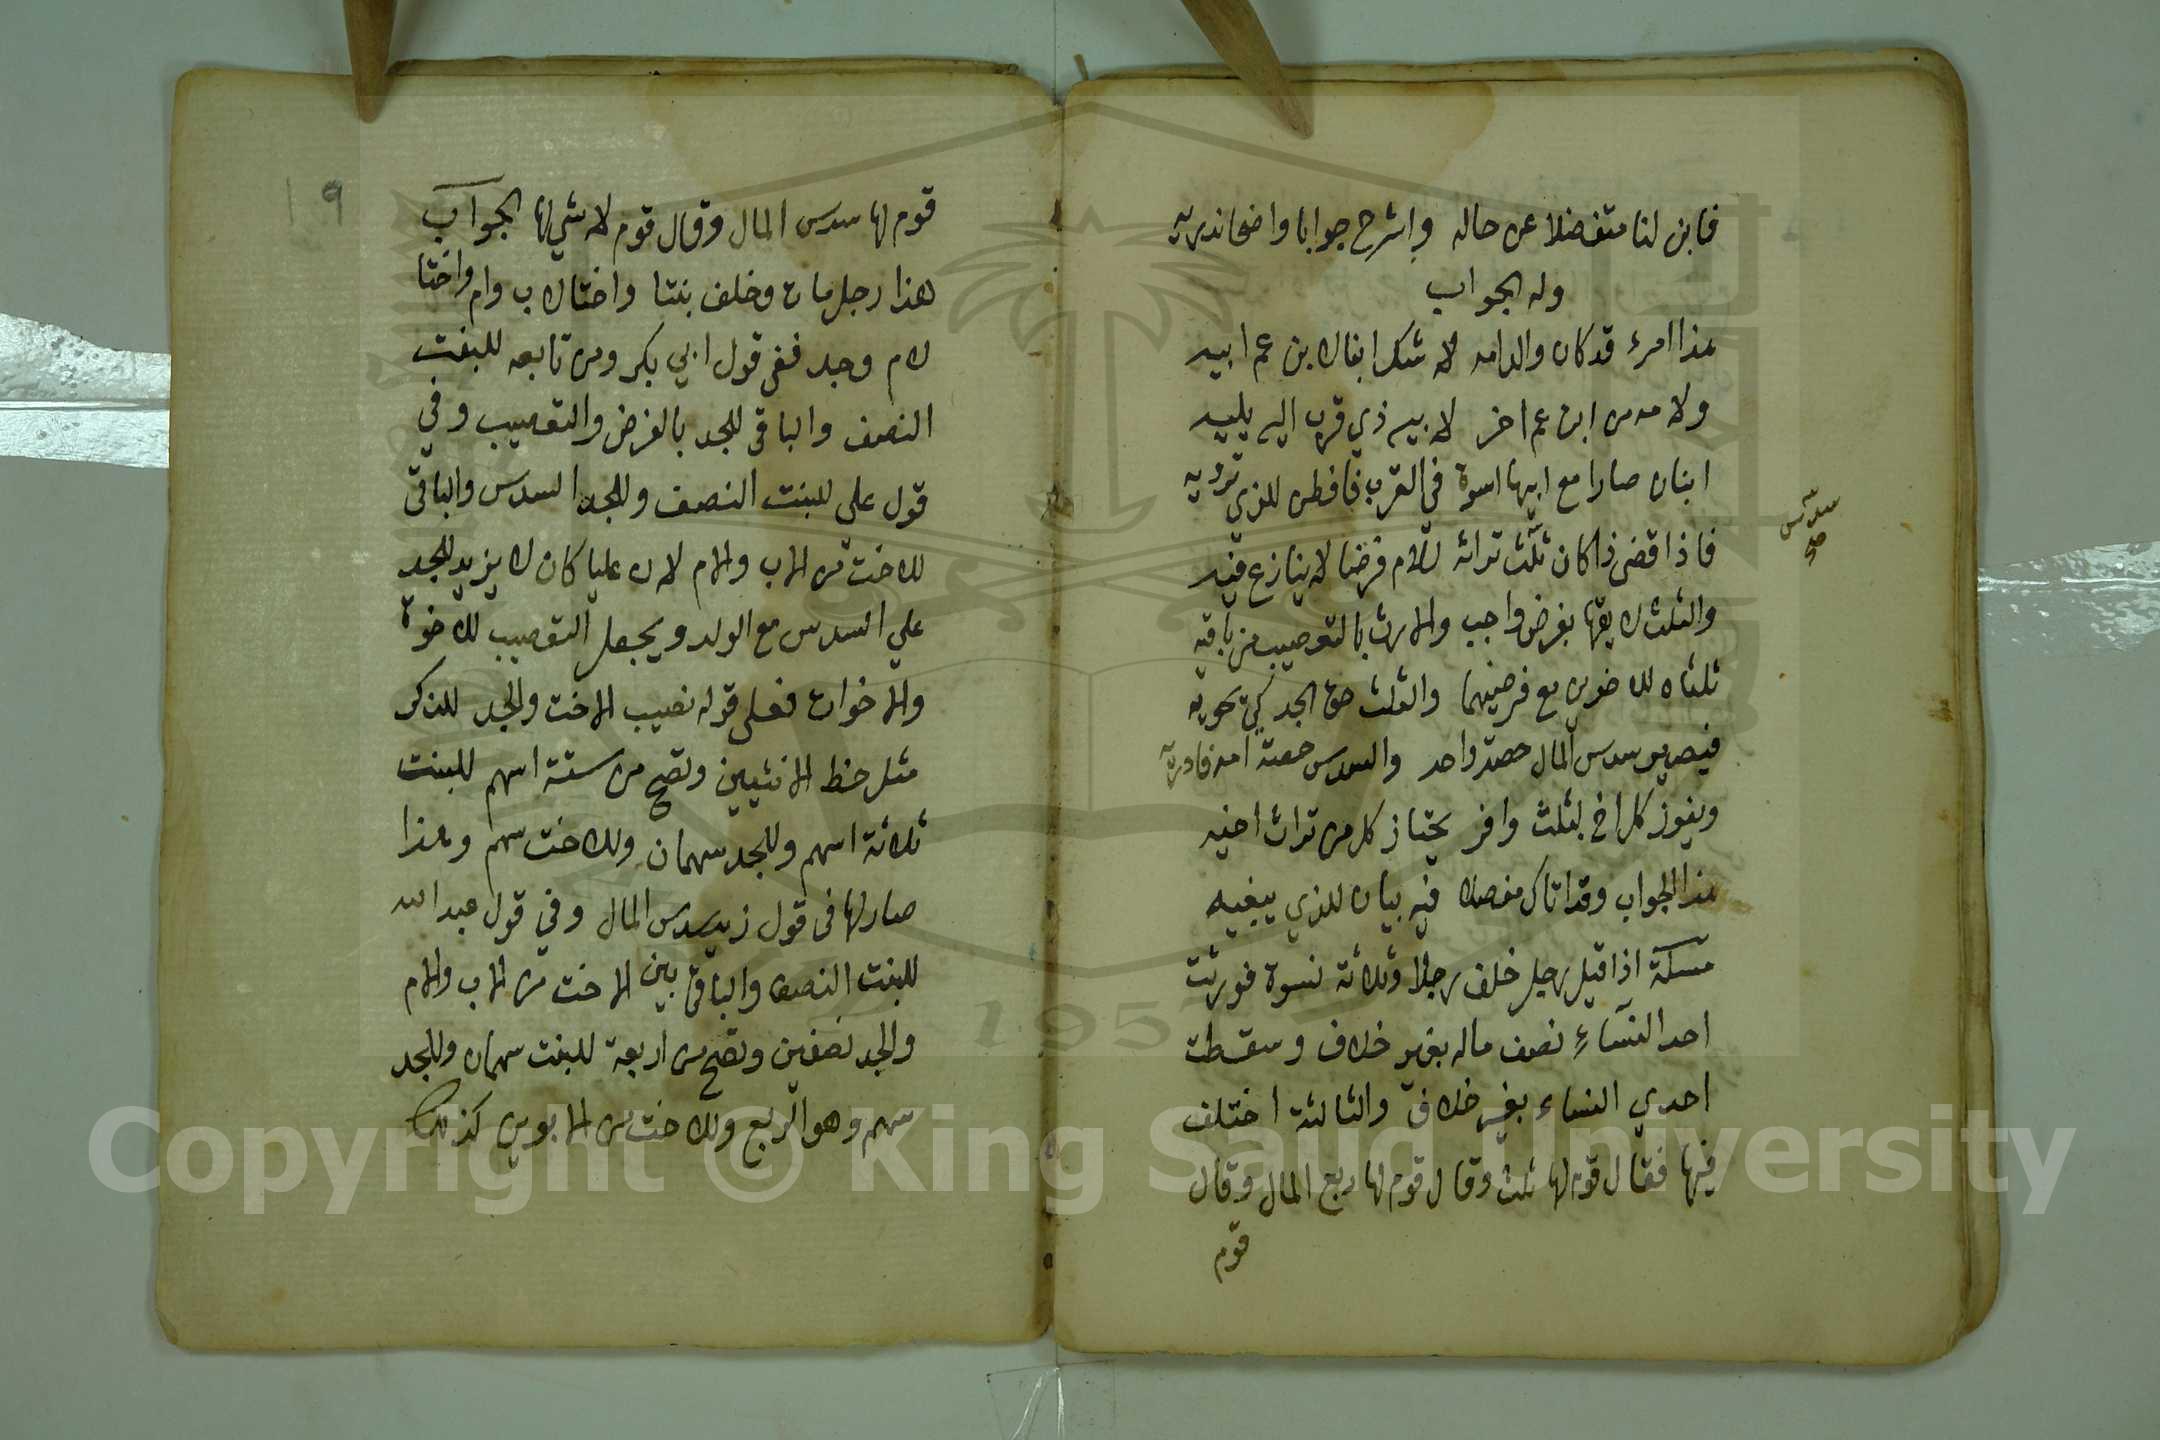 فابن لنا متفضلا عن حاله واشرح جوابا واضحا ندريه
وله الجواب
هذا امرء قد كان والد امه لا شك ابنا لابن عم ابيه
ولامه من ابن عم اخر لابيه ذي قرب اليه يليه
ابنان صارا مع ابيها اسوة في القرب فافطن للذي ترويه
فاذا قضى ذا كان ثلث تراثه للام فرضا لا ينازع فيه
والثلث لابنيها بفرض واجب والارث بالتعصيب من باقيه
ثلثاه للاخوين مع فرضيهما والثلث حق الجد كي يحويه
فيصير سدس المال حصة واحد والسدس حصة امه فادريه
ويفوز كل اخ بثلث وافر يحتاز كل من تراث اخيه
هذا الجواب وقد اتاك مفصلا فيه بيان للذي يبغيه
مسئلة اذا قيل رجل خلف رجلا وثلاثة نسوة فورثت
احد النسآء نصف ماله بغير خلاف وسقطت
احدي النساء بغير خلاف والثالثة اختلف
فيها فقال قوم لها ثلث وقال قوم لها ربع المال وقال
قوم
سدس
صح
١٩
قوم لها سدس المال وقال قوم لا شي لها الجواب
هذا رجل مات وخلف بنتا واختا لاب وام واختا
لام وجد ففي قول ابي بكر ومن تابعه للبنت
النصف والباقي للجد بالفرض والتعصيب وفي
قول علي للبنت النصف وللجد السدس والباقي
للاخت من الاب والام لان عليا كان لا يزيد للجد
علي السدس مع الولد ويجعل التعصيب للاخوة
والاخوات فعلى قوله نصيب الاخت والجد للذكر
مثل حظ الانثيين وتصح من ستة اسهم للبنت
ثلاثة اسهم وللجد سهمان وللاخت سهم وهذا
صار لها في قول زيد سدس المال وفي قول عبد الله
للبنت النصف والباقي بين الاخت من الاب والام
والجد نصفين وتصح من اربعة للبنت سهمان وللجد
سهم وهو الربع وللاخت من الابوين كذلك
Copyright © King Saud University
1957